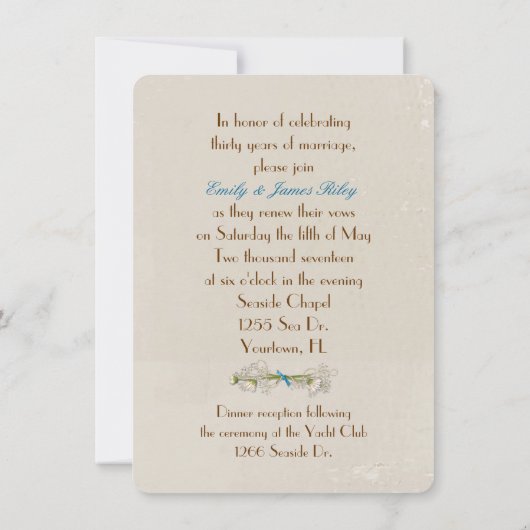 In honor of celebrating
thirty years of marriage,
please join
Emily & James Riley
as they renew their vows
on Saturday the fifth of May
Two thousand seventeen
at six o'clock in the evening
Seaside Chapel
1255 Sea Dr.
Yourtown, FL
Dinner reception following
the ceremony at the Yacht Club
1266 Seaside Dr.